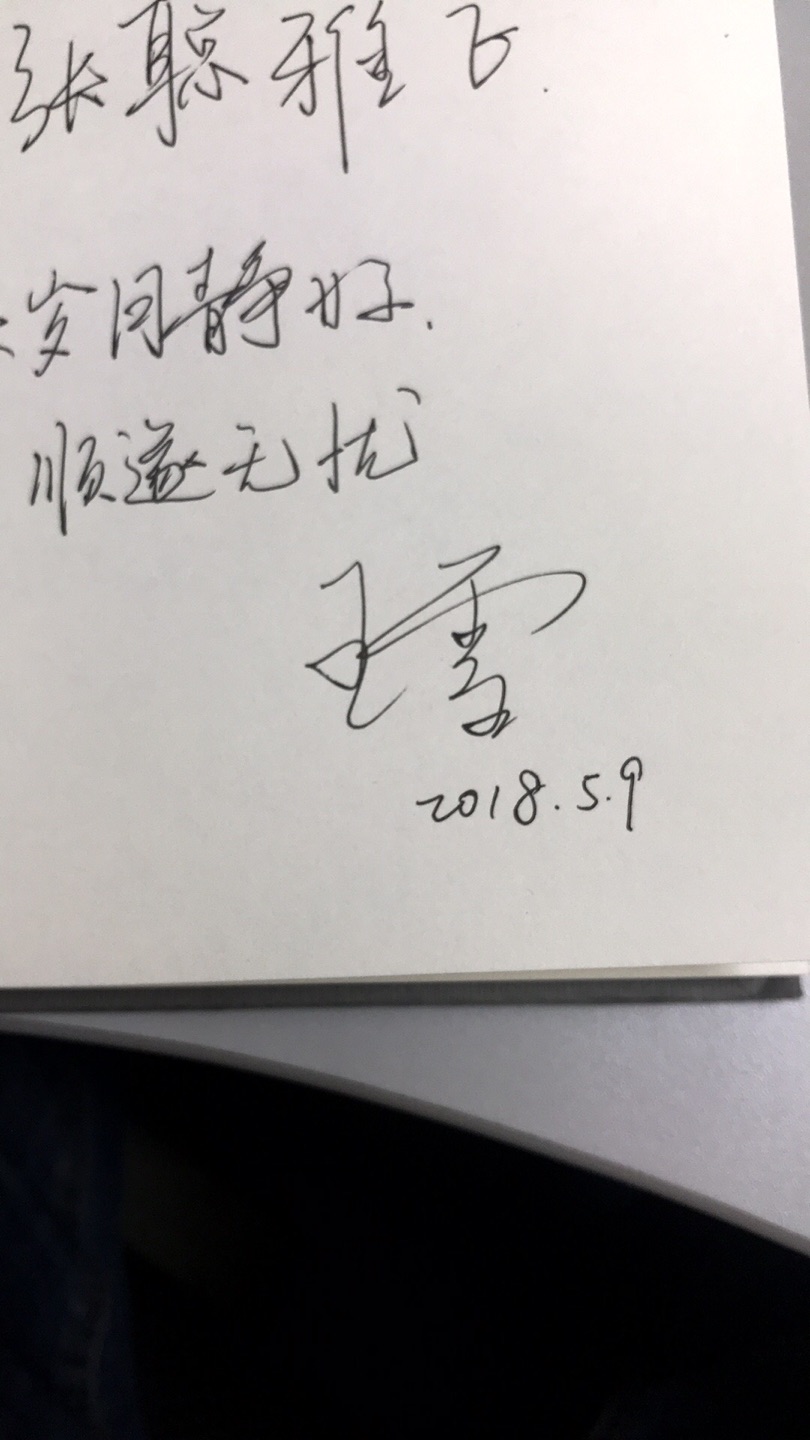 张聪雅正.
岁月静好.
顺遂无扰
王雪
2018.5.9